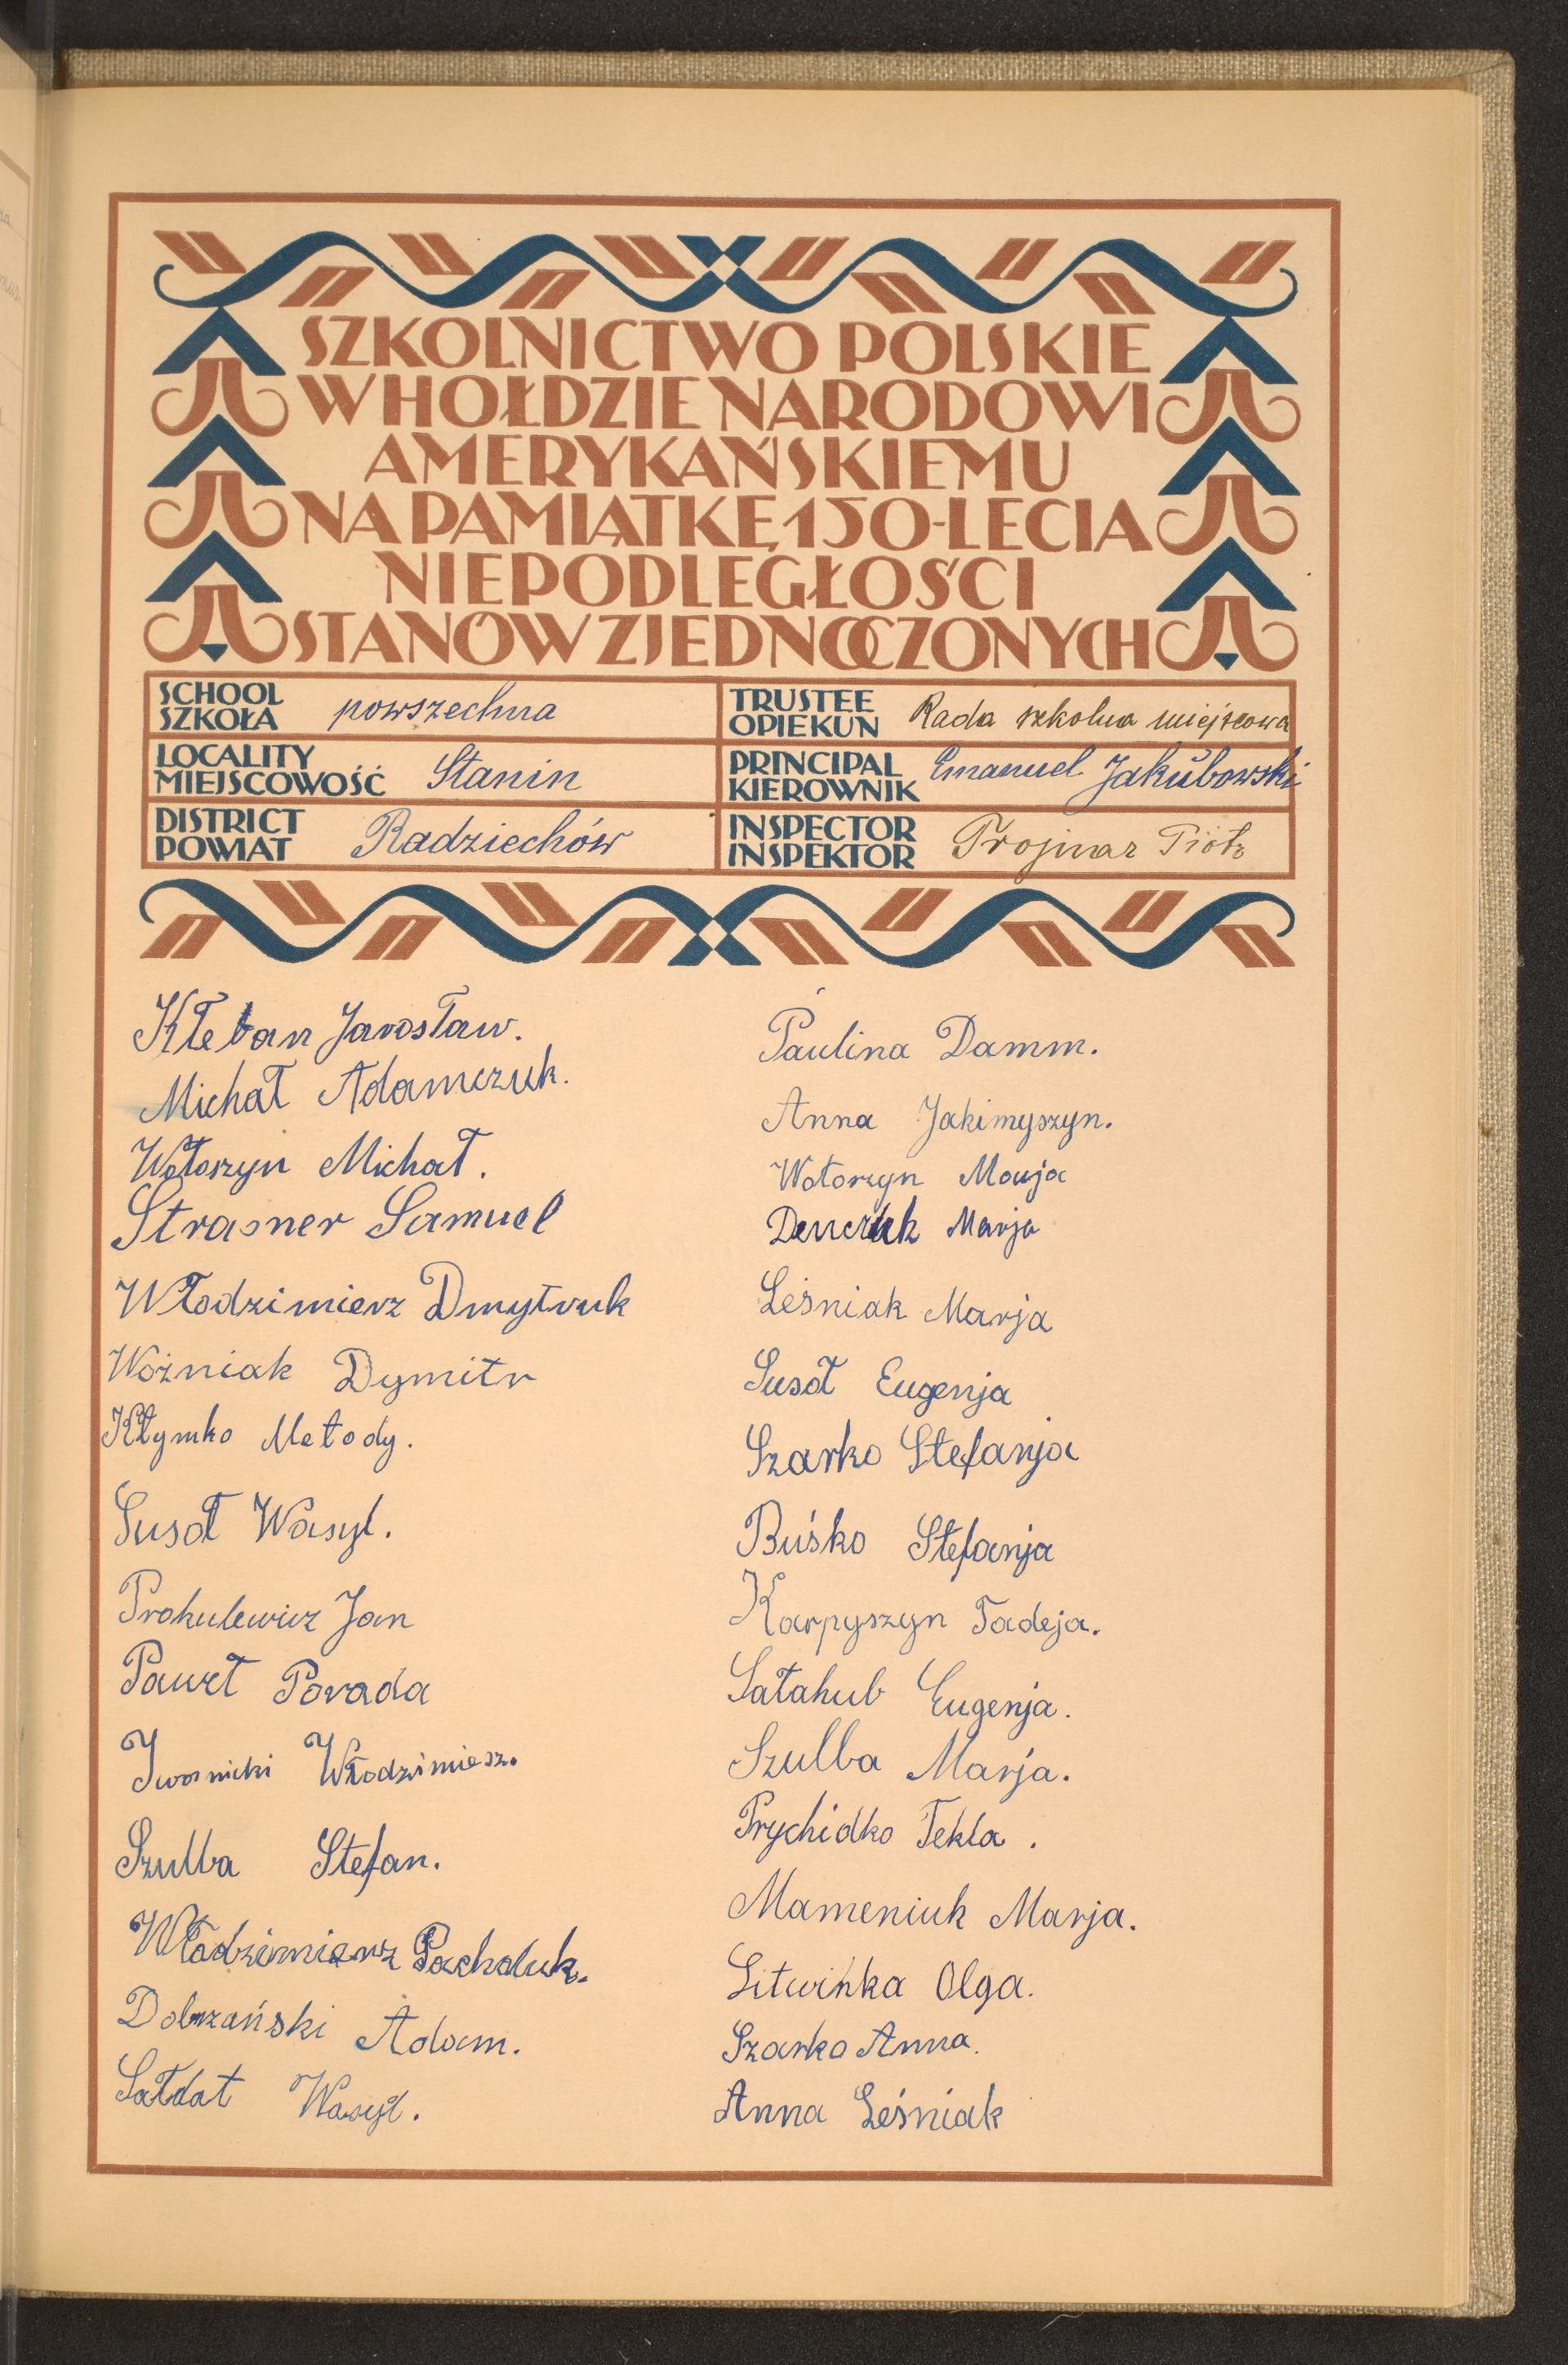 SZKOLNICTWO POLSKIE
W HOŁDZIE NARODOWI
AMERYKAŃSKIEMU
NA PAMIĄTKĘ 150-LECIA
NIEPODLEGŁOŚCI
STANÓW ZJEDNOCZONYCH
SCHOOL
SZKOŁA powszechna
TRUSTEE
OPIEKUN Rada szkolna miejscowa
LOCALITY
MIEJSCOWOŚĆ Stanin
PRINCIPAL
KIEROWNIK Emanuel Jakubowski
DISTRICT
POWIAT Radziechów
INSPECTOR
INSPEKTOR Trojnar Piotr
Kłeban Jarosław.
Michał Adamczuk.
Wołoszyn Michał.
Strasner Samuel
Włodzimierz Dmytruk
Woźniak Dymitr
Kłymko Metody.
Susoł Wasyl.
Prokulewicz Jan
Paweł Porada
Iwornicki Włodzimiesz.
Szulba Stefan.
Włodzimierz Pachaluk.
Dobrzański Adam.
Sałdat Wasyl.
Paulina Damm.
Anna Jakimyszyn.
Wołoszyn Marja
Denczuk Marja
Leśniak Marja
Susoł Eugenja
Szarko Stefanja
Buśko Stefanja
Karpyszyn Tadeja.
Sałahub Eugenja.
Szulba Marja.
Prychidko Tekla.
Mameniuk Marja.
Litwinka Olga.
Szarko Anna.
Anna Leśniak